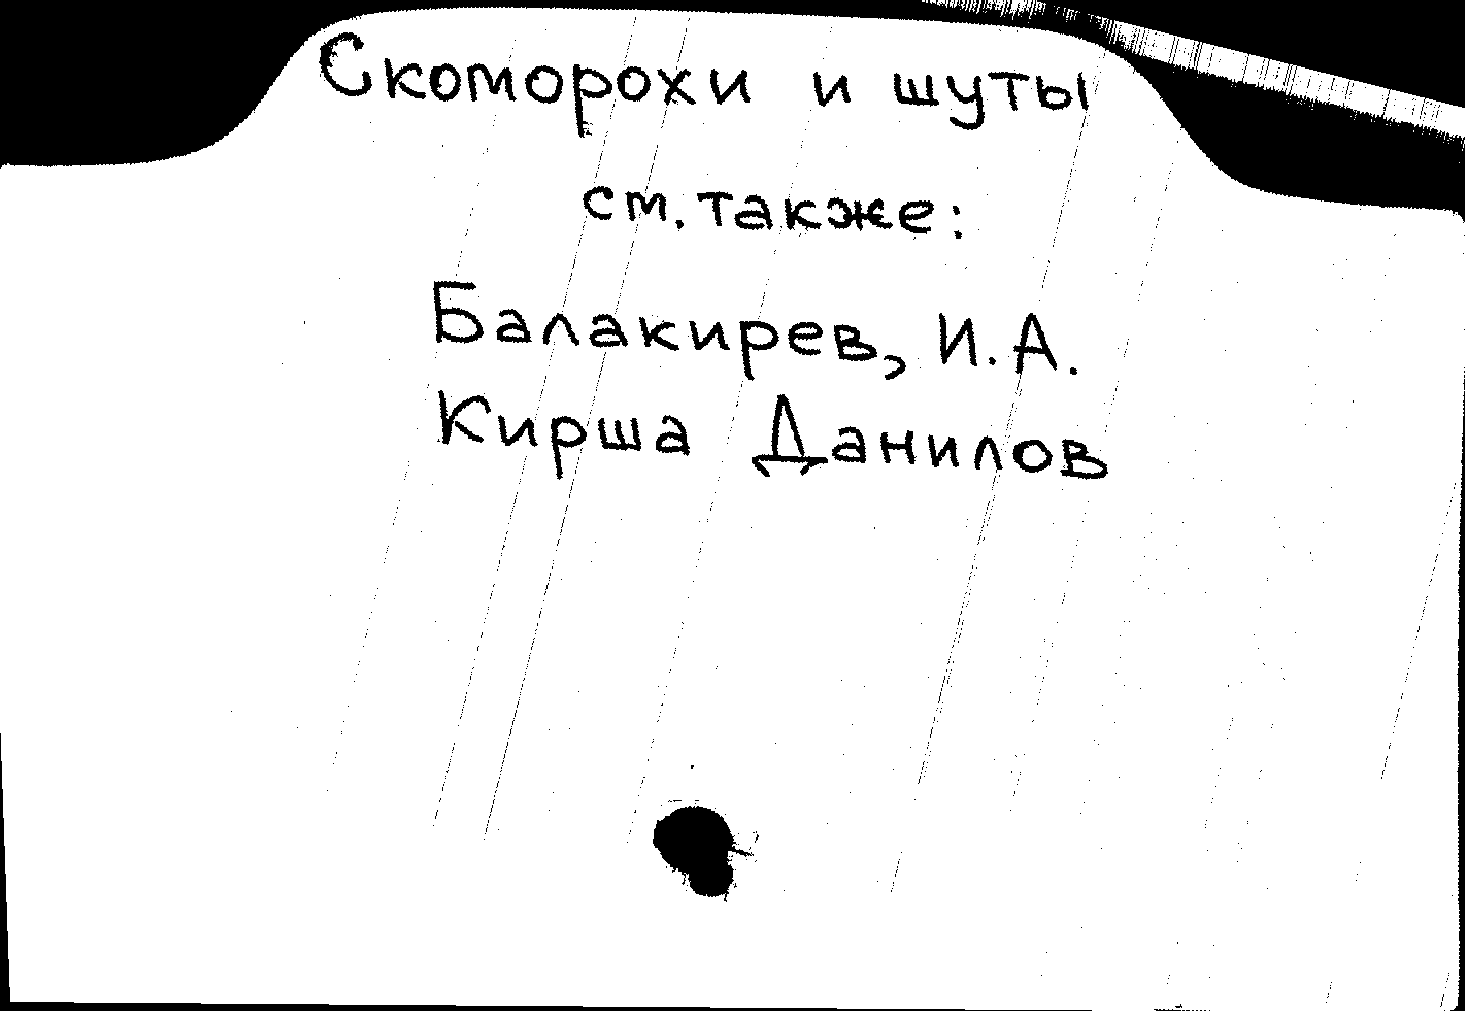 Скоморохи и шуты
см. также:
Балакирев, И.А.
Кирша Данилов